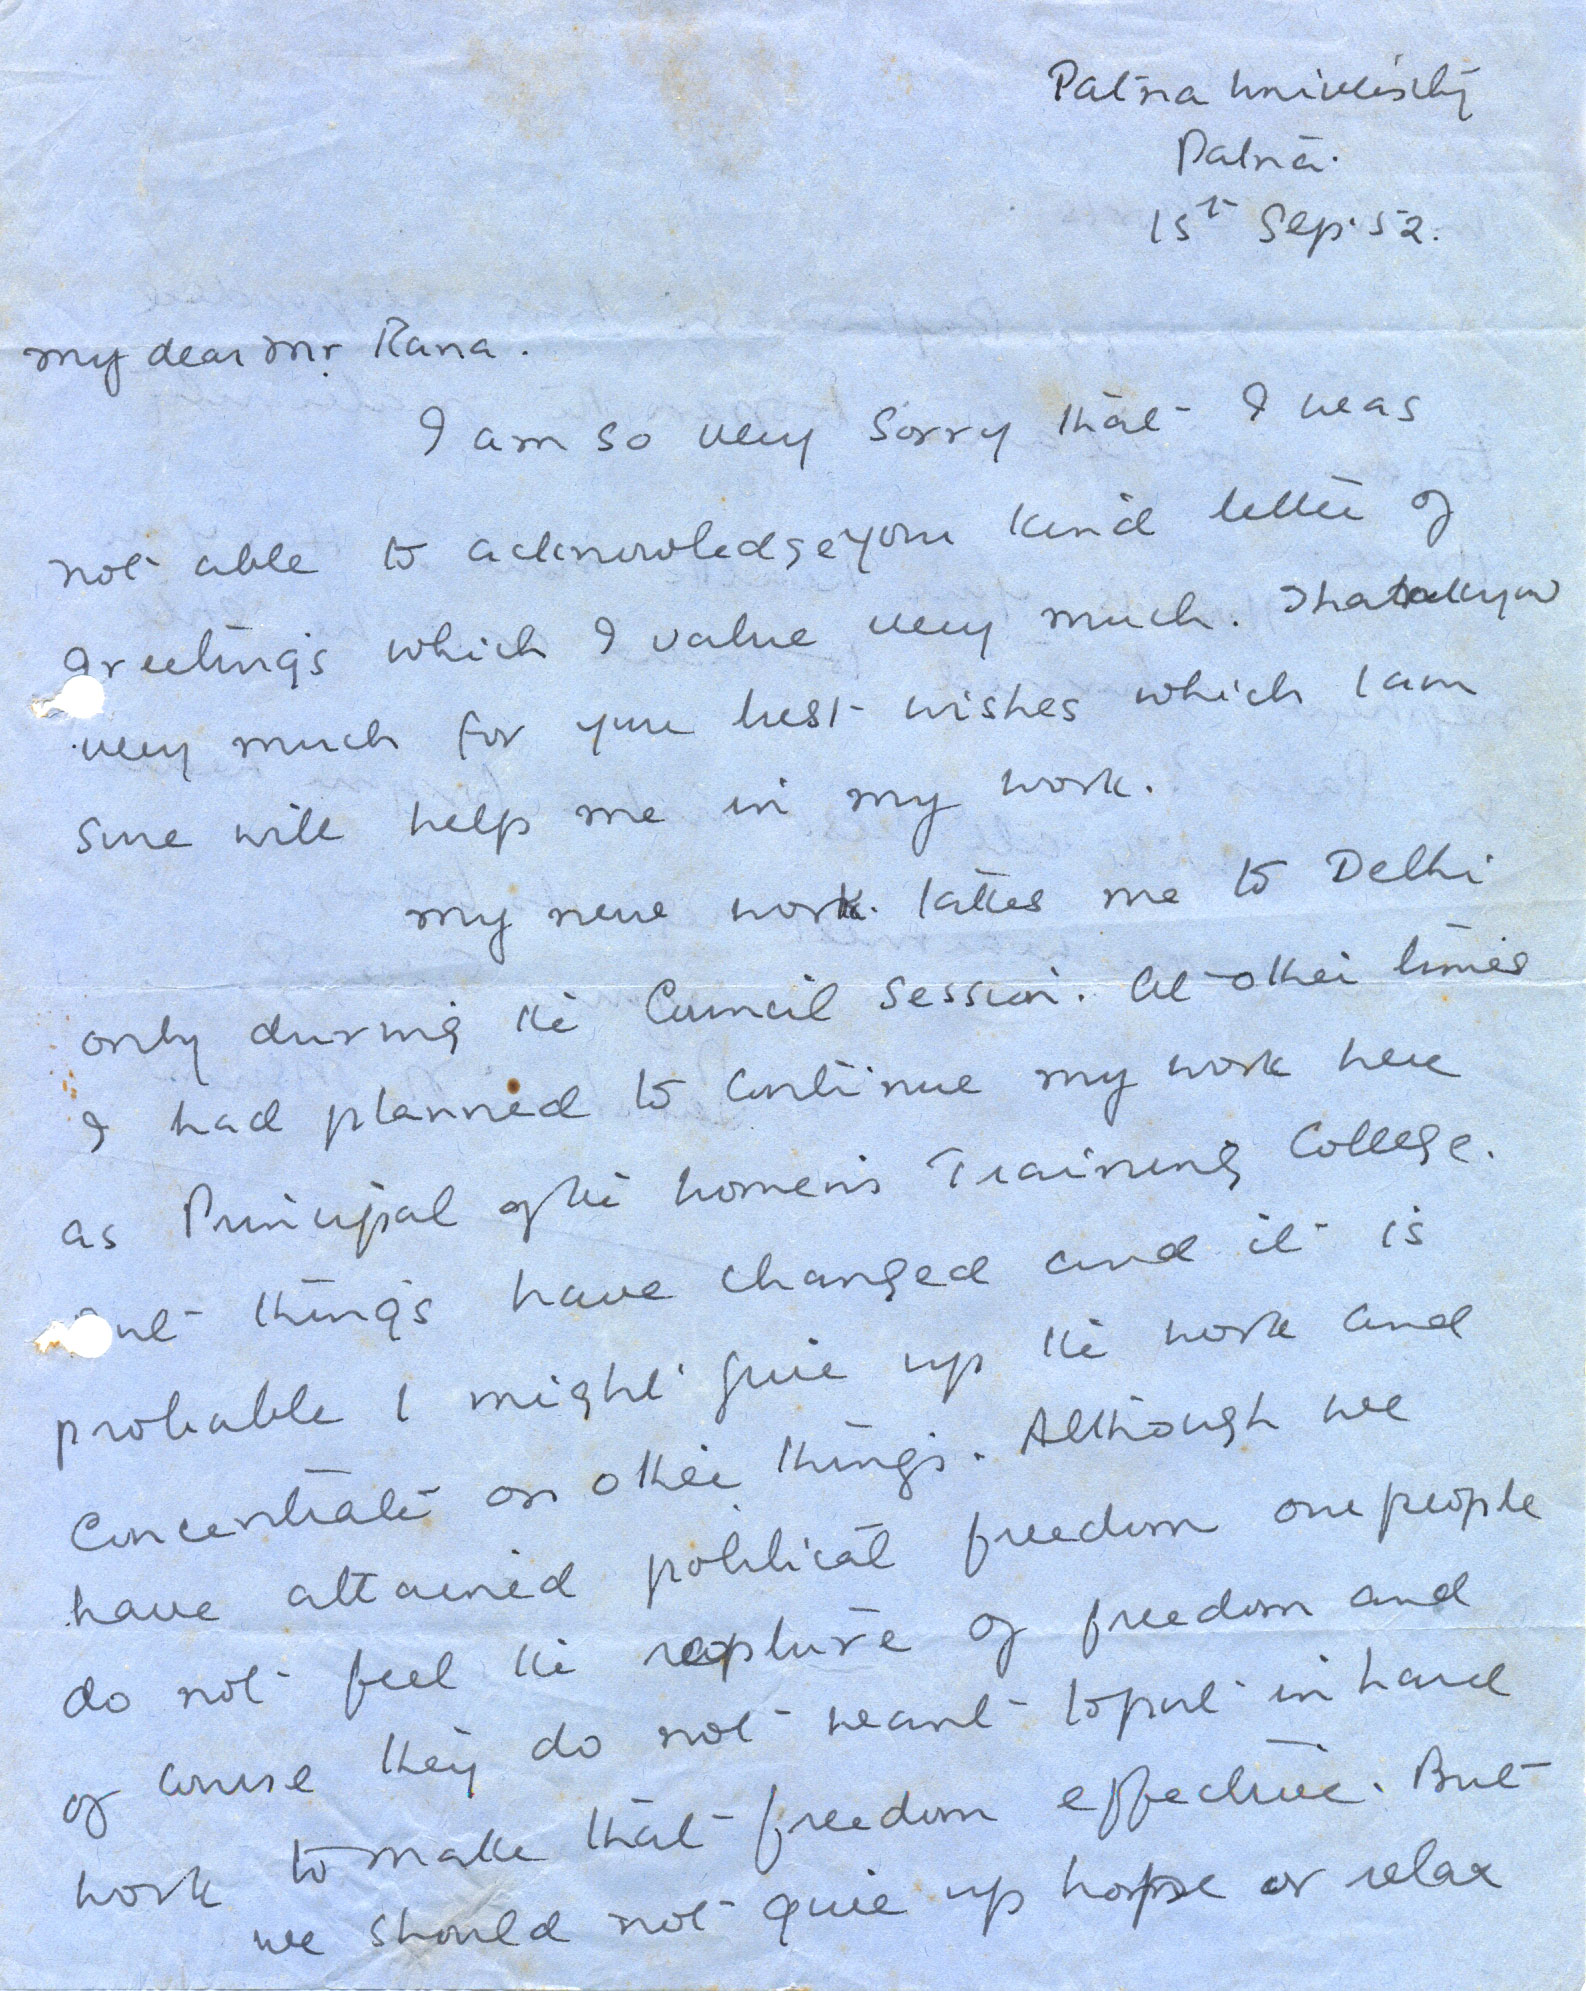 Patna University
Patna.
15th Sep. 52.
My dear Mr Rana.
I am so very sorry that I was
not able to acknowledge your kind letter of
greetings which I value very much. Thank you
very much for your best wishes which I am
sure will help me in my work.
My new work takes me to Delhi
only during the Council Session. At other times
I had planned to continue my work here
as Principal of the Women's Training College.
But things have changed and it is
probable I might give up the work and
concentrate on other things. Although we
have attained political freedom our people
do not feel the rapture of freedom and
of course they do not want to put in hard
work to make that freedom effective. But
we should not give up hope or relax